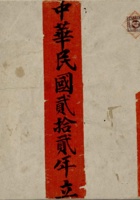 中華民國貳拾貳年立